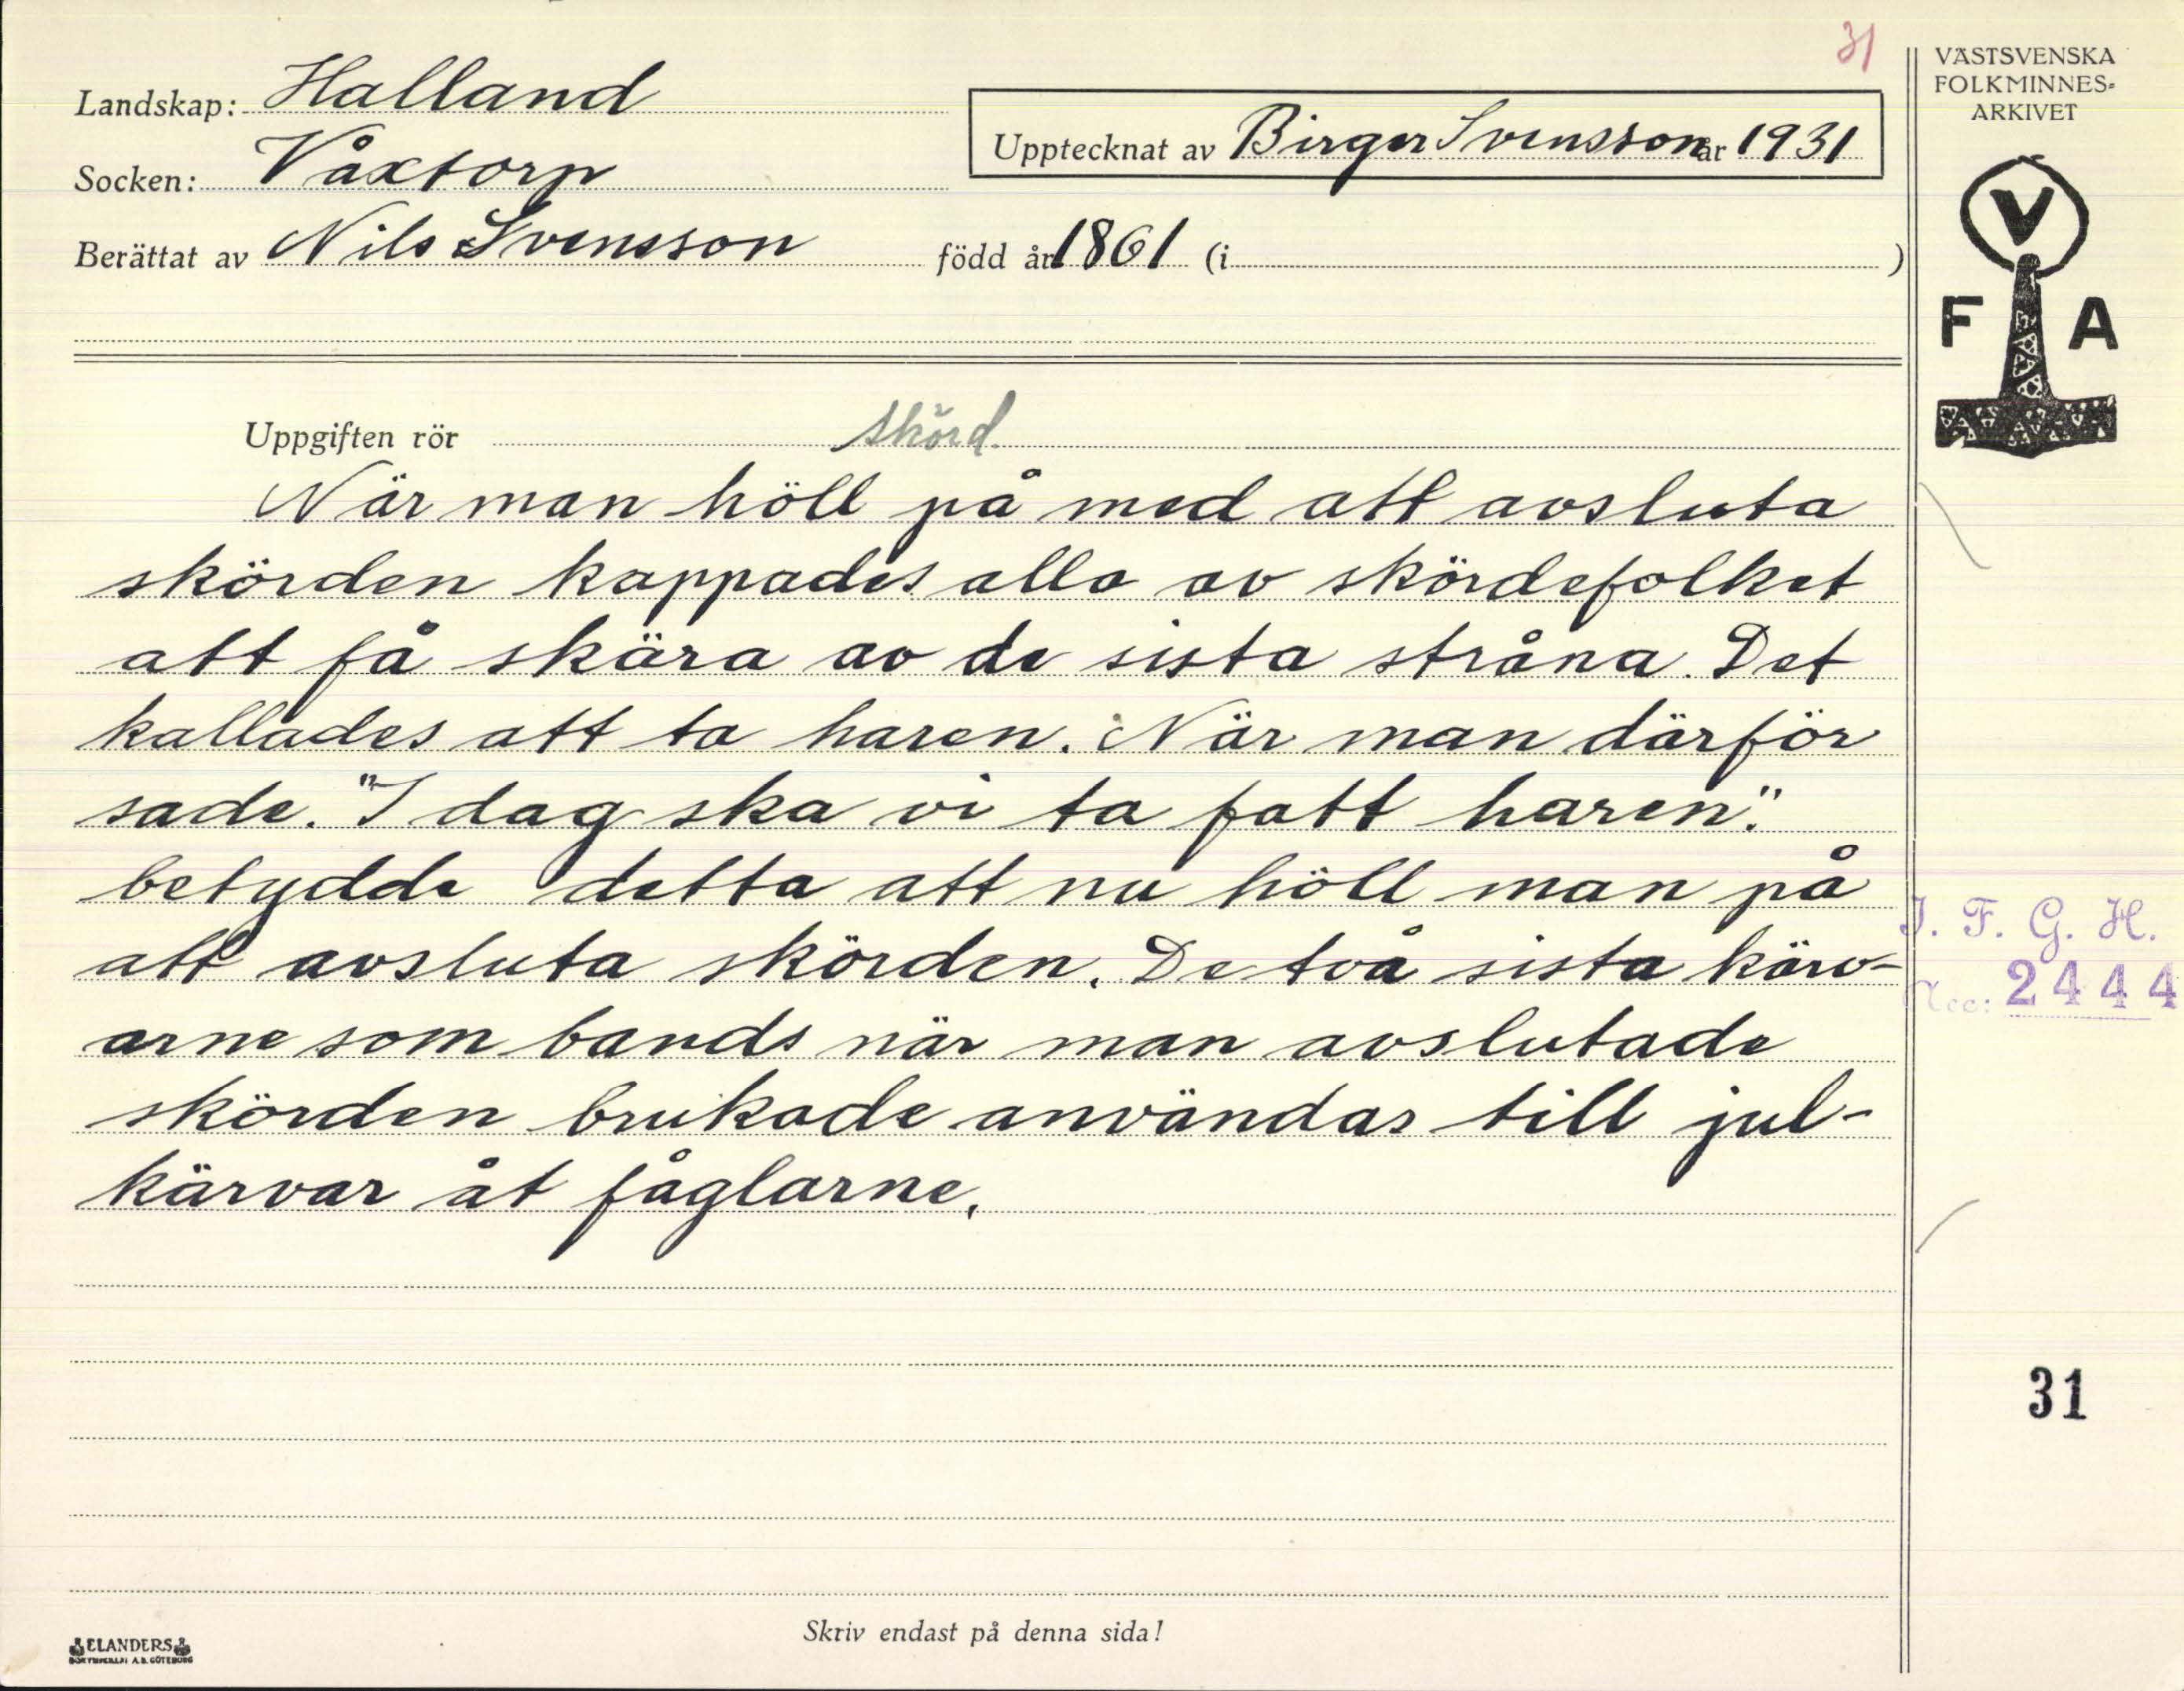 31
Landskap: Halland
Socken: Våxtorp
Berättat av Nils Svensson född år 1861 (i )
Upptecknat av Birger Svensson år 1931
VÄSTSVENSKA
FOLKMINNES-
ARKIVET
V
F A
Uppgiften rör skörd.
När man höll på med att avsluta
skörden kappades alla av skördefolket
att få skära av de sista stråna. Det
kallades att ta haren. När man därför
sade. "I dag ska vi ta fatt haren".
betydde detta att nu höll man på
att avsluta skörden. De två sista kärv-
arne som bands när man avslutade
skörden brukade användas till jul-
kärvar åt fåglarne.
I. F. G. H.
Acc: 2444
31
Skriv endast på denna sida!
ELANDERS
BOKTRYCKERI A.B. GÖTEBORG